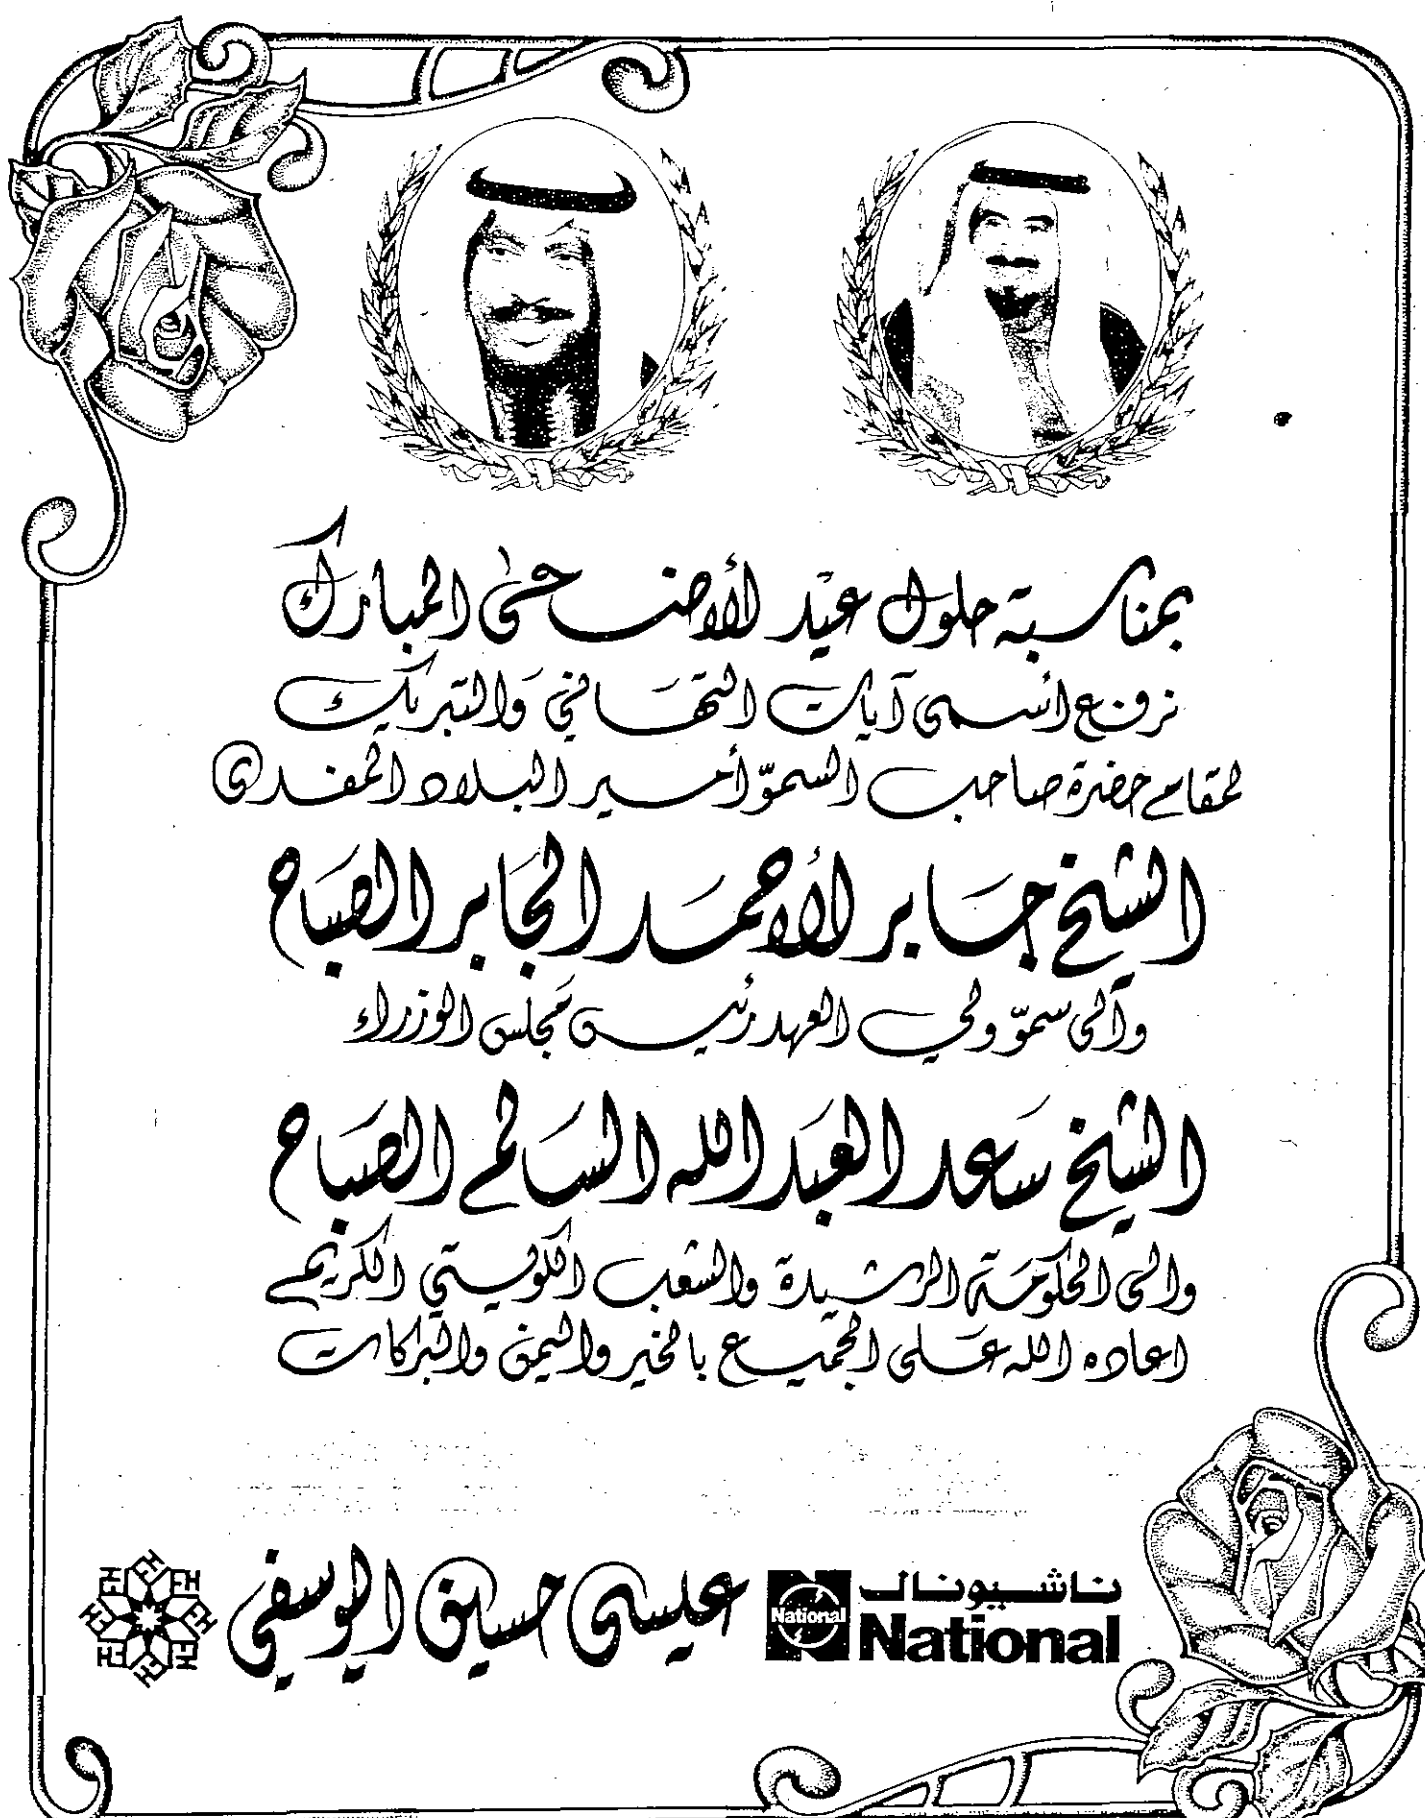 بمناسبة حلول عيد الأضحى المبارك
نرفع أسمى آيات التهاني والتبريك
لمقام حضرة صاحب السمو أمير البلاد المفدى
الشيخ جابر الأحمد الجابر الصباح
والى سمو ولي العهد رئيس مجلس الوزراء
الشيخ سعد العبدالله السالم الصباح
والى الحكومة الرشيدة والشعب الكويتي الكريم
اعاده الله على الجميع بالخير واليمن والبركات
ناشيونال
National
National
عيسى حسين اليوسفي